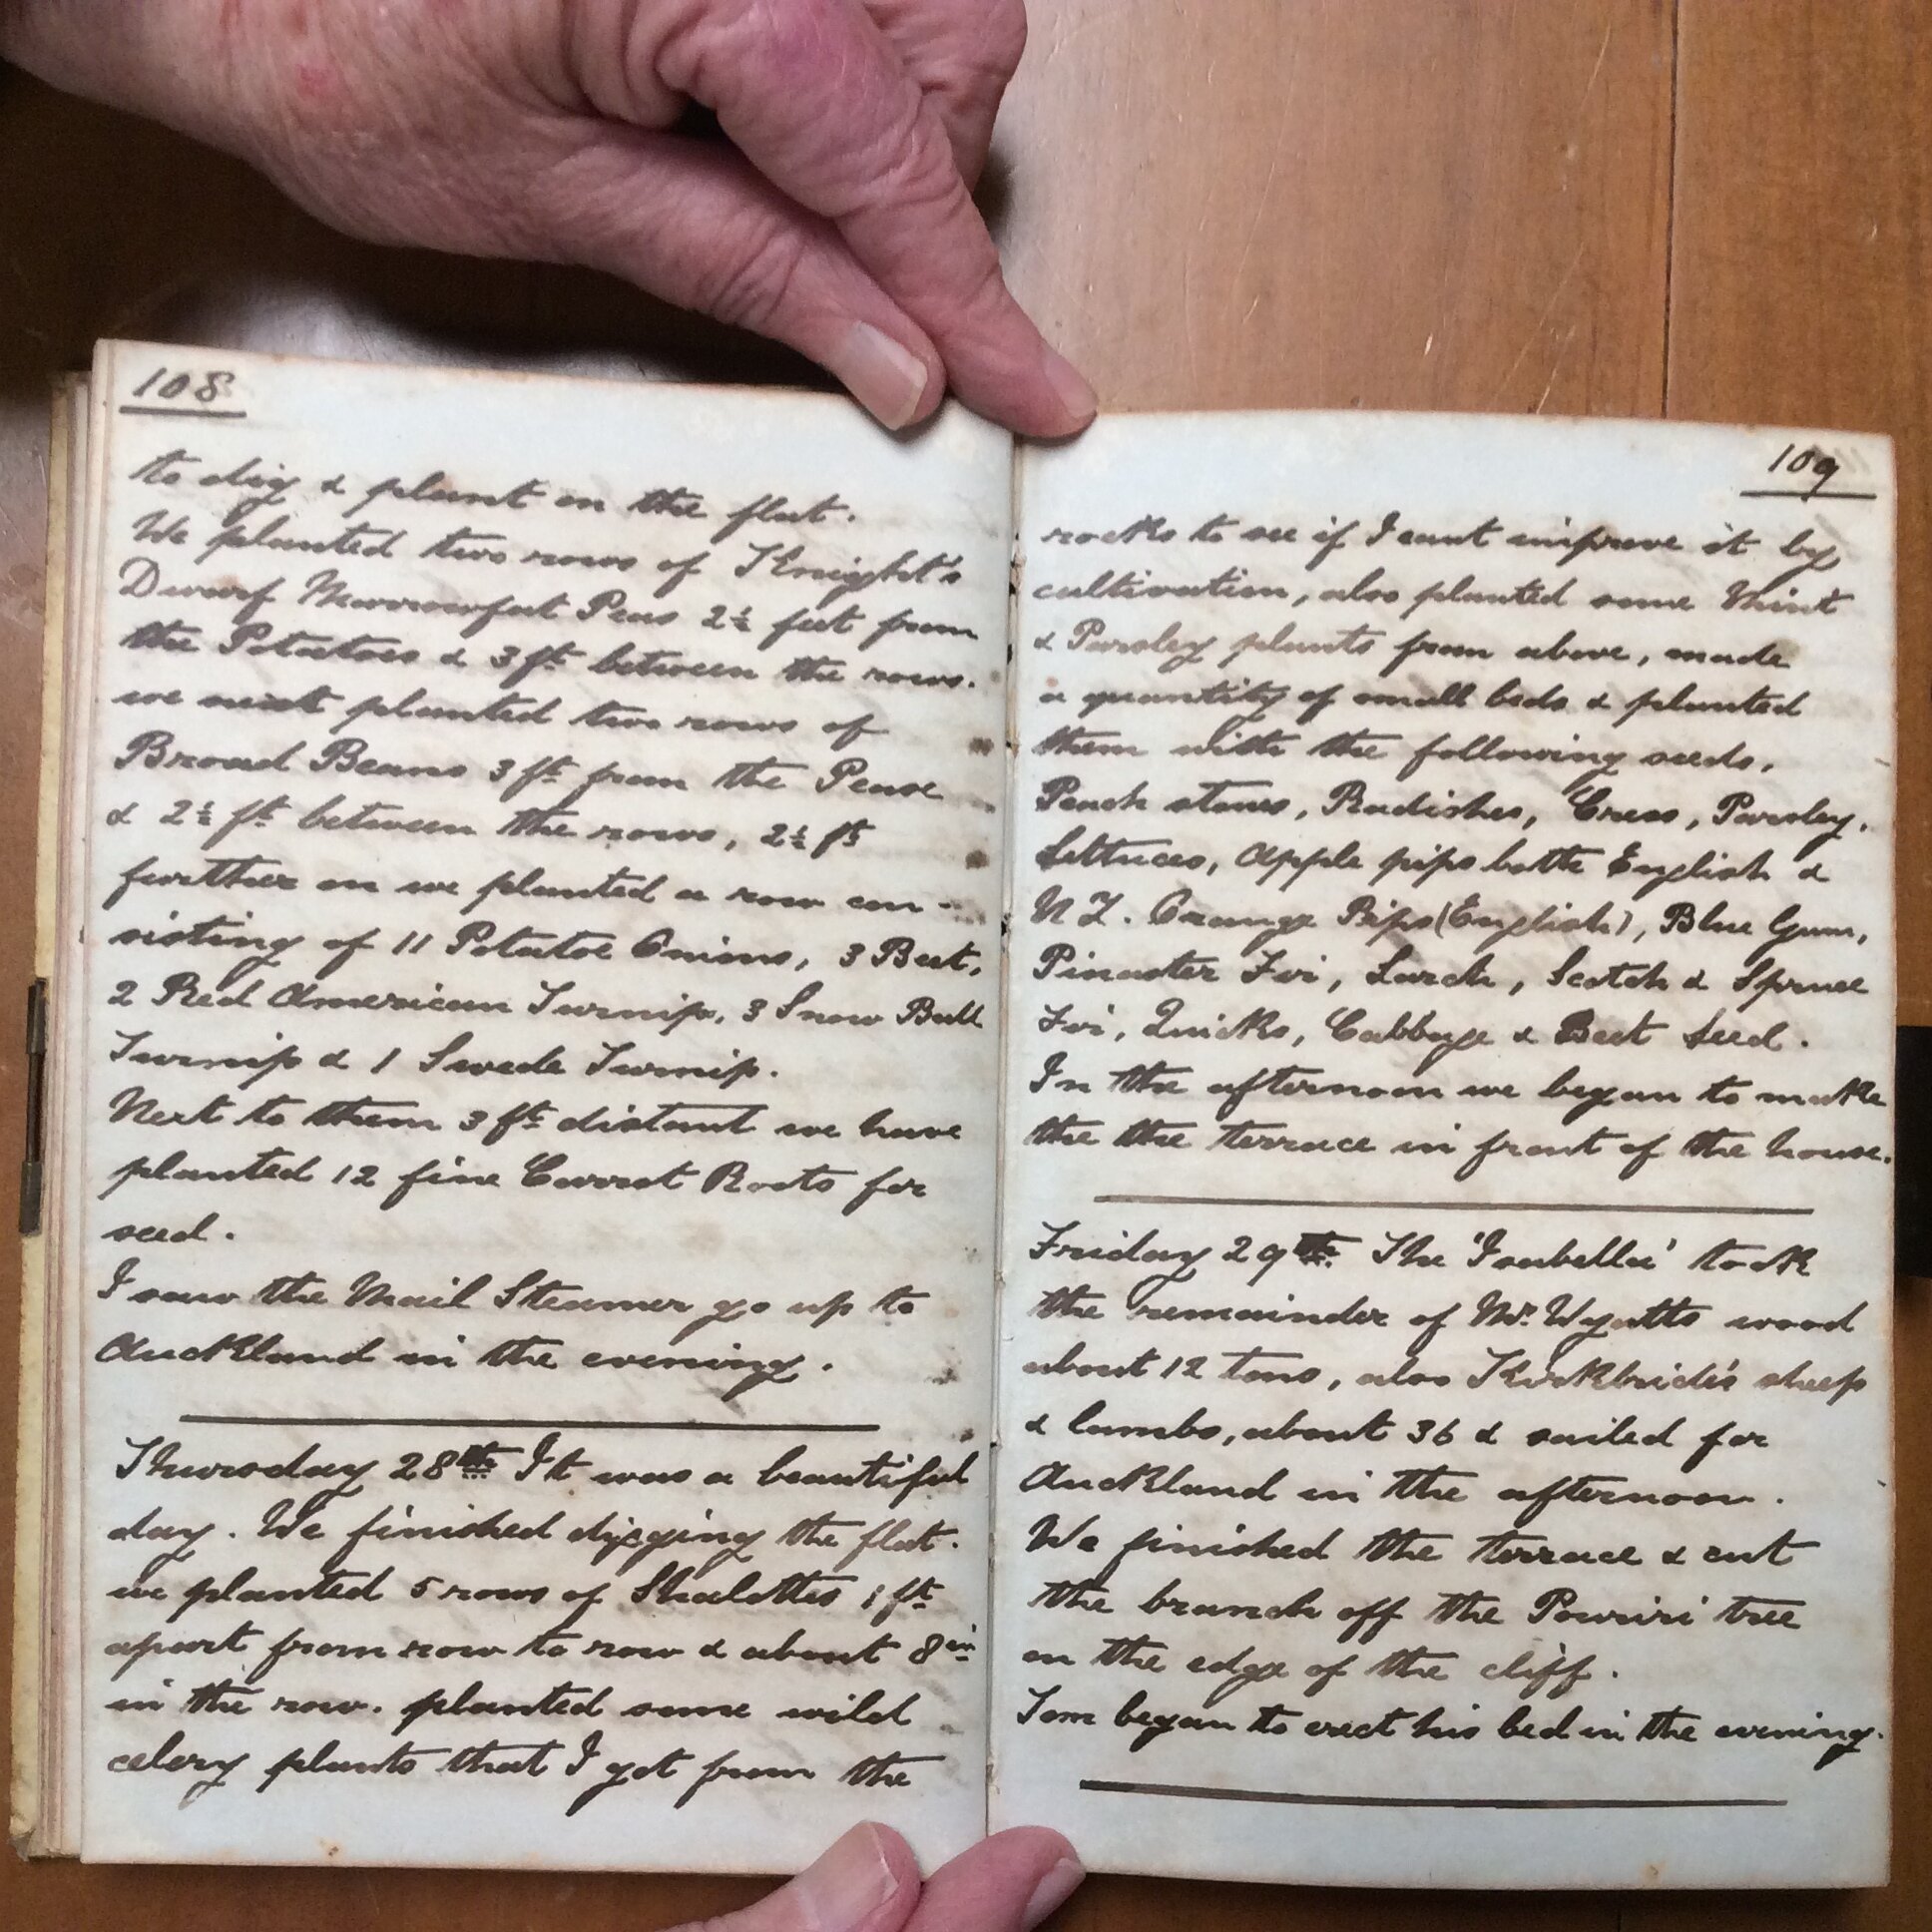 108
to dig & plant on the flat.
We planted two rows of Knight's
Dwarf Marrowfat Peas 2½ feet from
the Potatoes & 3 ft between the rows.
we next planted two rows of
Broad Beans 3 ft from the Pease
& 2½ ft between the rows, 2½ ft
further on we planted a row con-
sisting of 11 Potatoe Onions, 3 Beet,
2 Red American Turnip, 3 Snow Ball
Turnip & 1 Swede Turnip.
Next to them 3 ft distant we have
planted 12 fine Carrot Roots for
seed.
I saw the Mail Steamer go up to
Auckland in the evening.
Thursday 28th It was a beautiful
day. We finished digging the flat.
we planted 5 rows of Shalottes 1 ft
apart from row to row & about 8 in
in the row. planted some wild
celery plants that I got from the
109
rocks to see if I cant improve it by
cultivation, also planted some Mint
& Parsley plants from above, made
a quantity of small beds & planted
them with the following seeds,
Peach stones, Radishes, Cress, Parsley,
Lettuces, Apple pips both English &
N Z. Orange Pips (English), Blue Gum,
Pinaster Fir, Larch, Scotch & Spruce
Fir, Quicks, Cabbage & Beet Seed.
In the afternoon we began to make
the the terrace in front of the house.
Friday 29th. The 'Isabella' took
the remainder of Mr. Wyatts wood
about 12 tons, also Kirkbride's sheep
& lambs, about 36 & sailed for
Auckland in the afternoon.
We finished the terrace & cut
the branch off the Powriri tree
on the edge of the cliff.
Tom began to erect his bed in the evening.